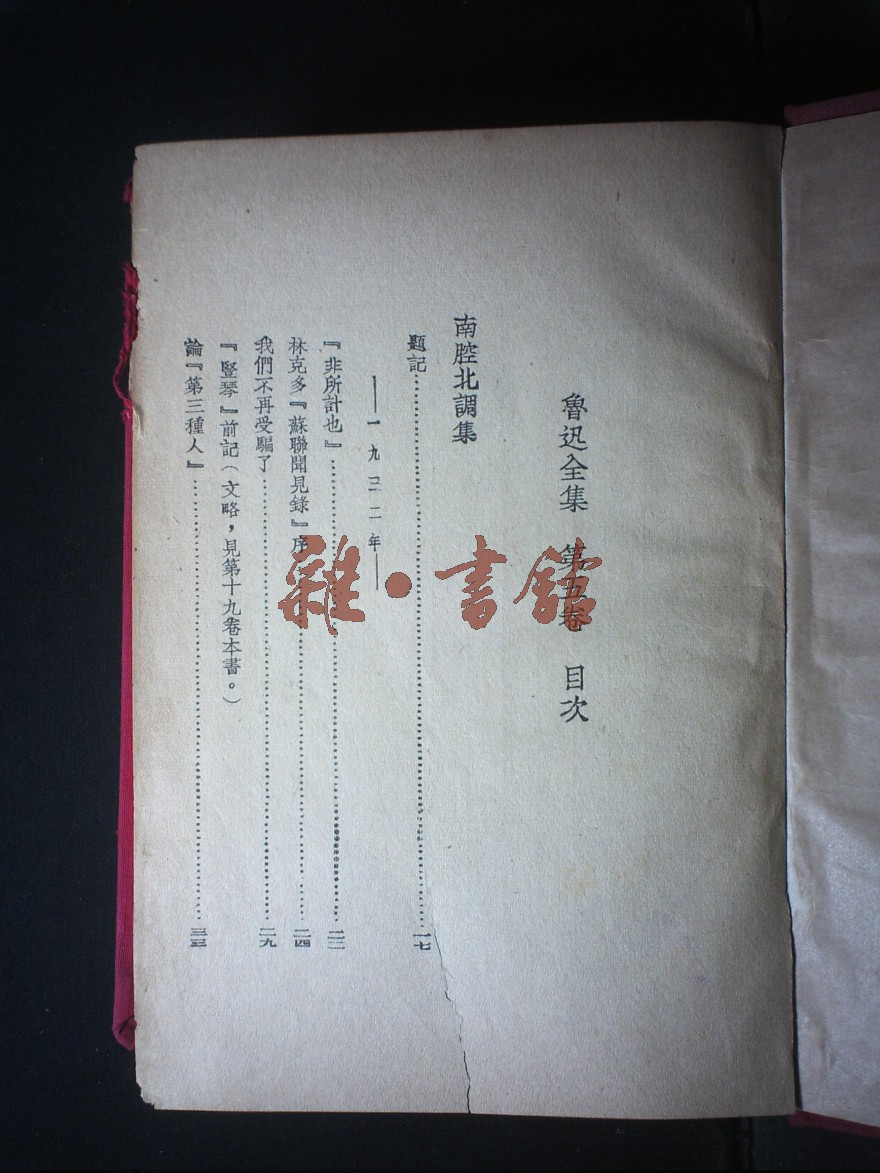 魯迅全集 第五卷 目次
南腔北調集
題記……一七
——一九三二年——
『非所計也』……二二
林克多『蘇聯聞見錄』序……二四
我們不再受騙了……二九
『豎琴』前記(文略,見第十九卷本書。)
論『第三種人』……三三
雜·書館